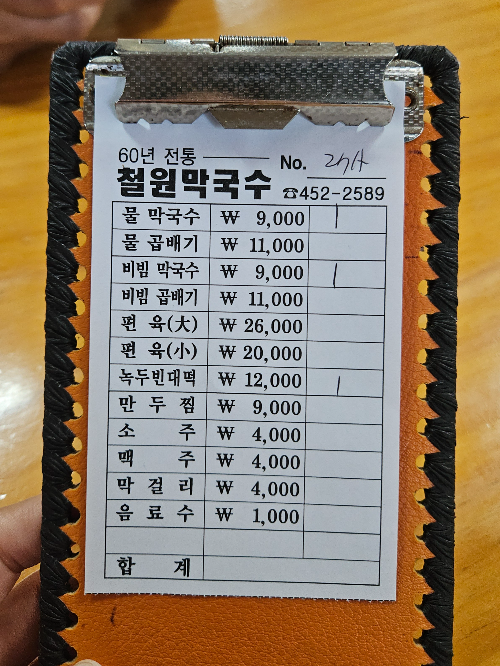 60년 전통
No.
철원막국수 ☎452-2589
물 막국수 ₩ 9,000 1
물 곱배기 ₩ 11,000
비빔 막국수 ₩ 9,000 1
비빔 곱배기 ₩ 11,000
편 육(大) ₩ 26,000
편 육(小) ₩ 20,000
녹두빈대떡 ₩ 12,000 1
만 두 찜 ₩ 9,000
소 주 ₩ 4,000
맥 주 ₩ 4,000
막 걸 리 ₩ 4,000
음 료 수 ₩ 1,000
합 계